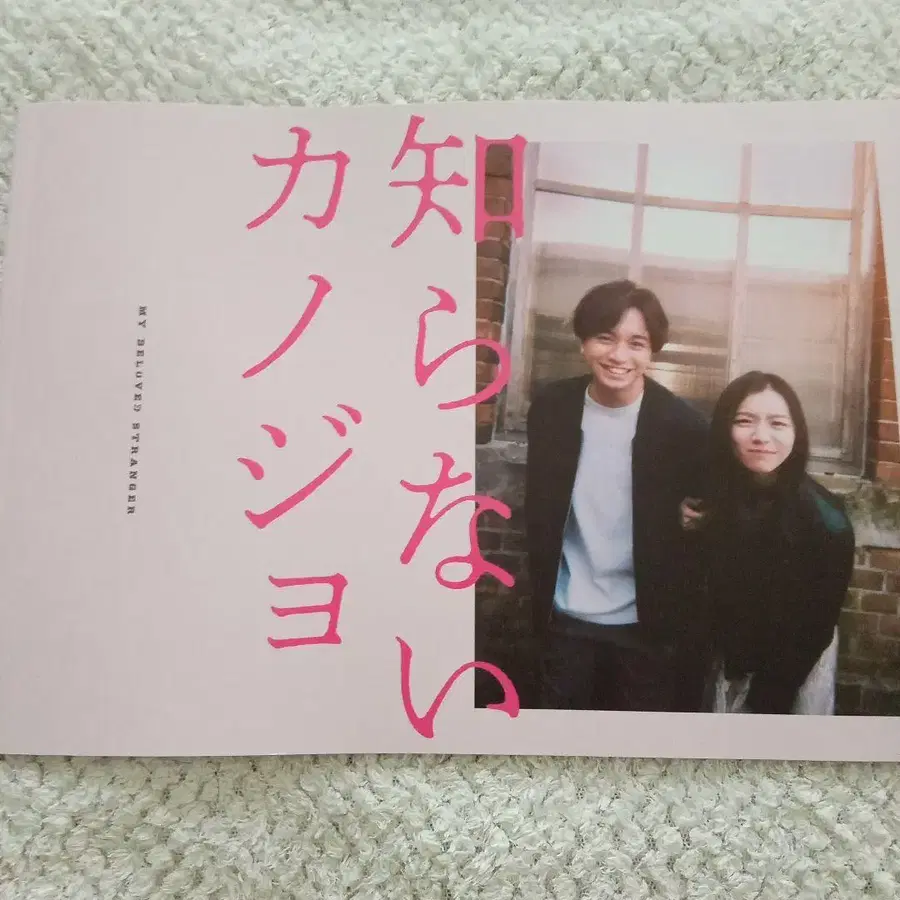 知らない
カノジョ
MY BELOVED STRANGER